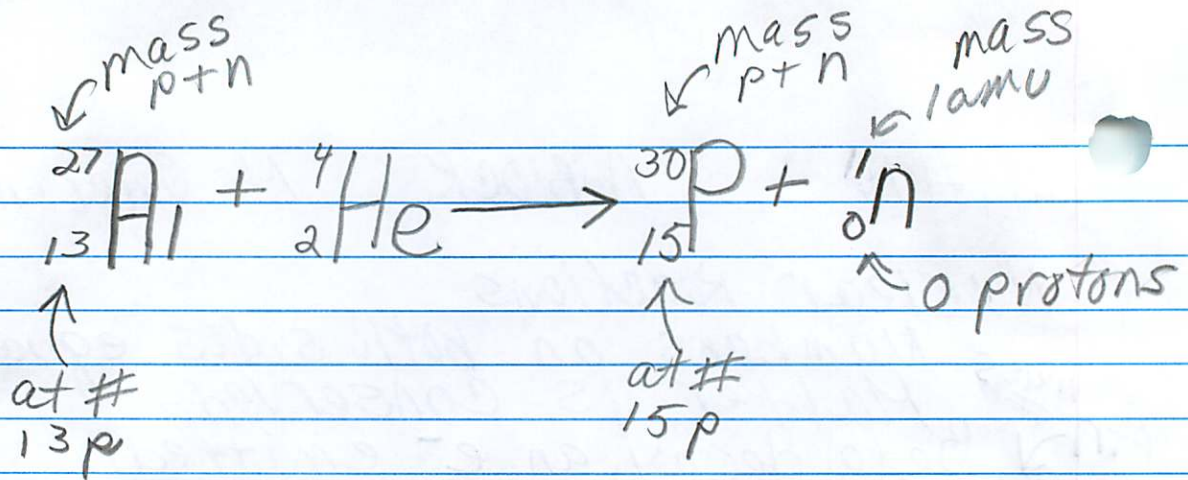 mass
p+n
mass
p+n
mass
1amu
²⁷₁₃Al + ⁴₂He → ³⁰₁₅P + ¹₀n
0 protons
at #
13p
at #
15p